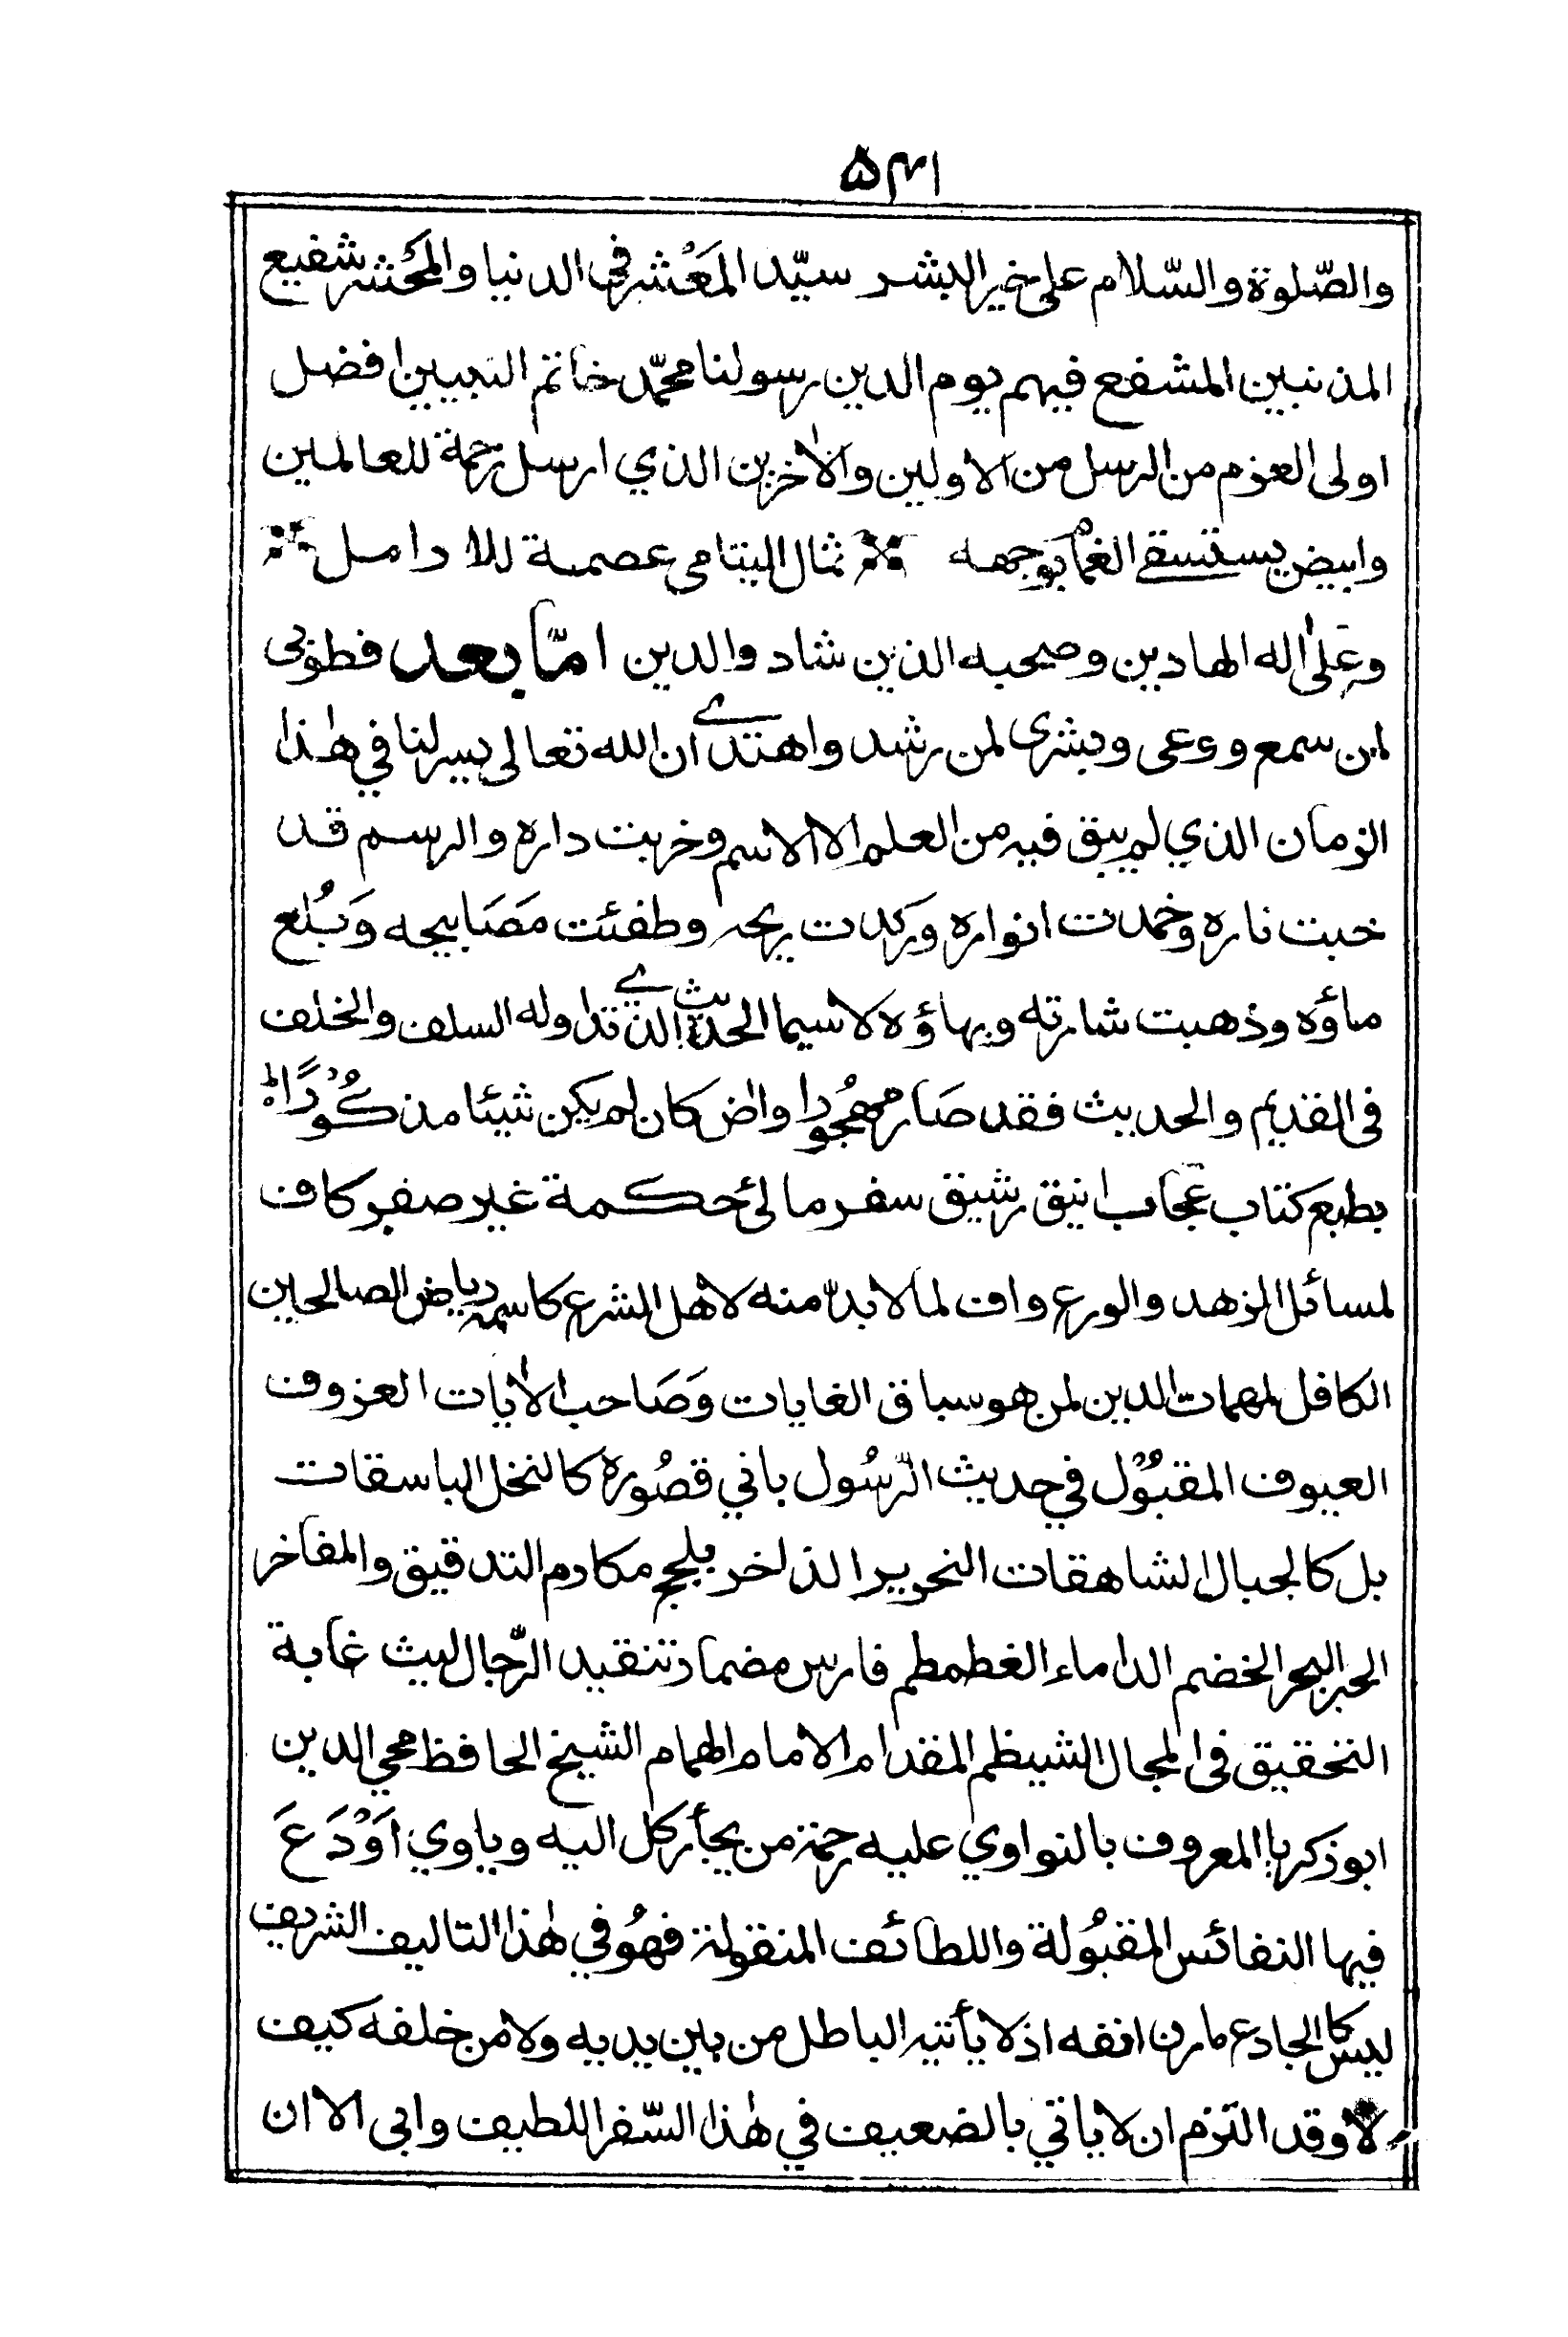 ۵۴۱
والصّلوة والسّلام على خير البشر سيّد المَعْشر في الدنيا والمَحْشر شفيع
المذنبين المشفع فيهم يوم الدين رسولنا محمّد خاتم النبيين افضل
اولى العزم من الرسل من الاولين والاٰخرين الذي ارسل رحمة للعالمين
وابيض يستسقى الغمام بوجهه ثمال اليتامى عصمة للارامل
وعلىٰ اٰله الهادين وصحبه الذين شادوا الدين امّا بعد فطوبى
لمن سمع ووعى وبشرى لمن رشد واهتدى ان الله تعالى يسر لنا في هٰذا
الزمان الذي لم يبق فيه من العلم الا الاسم وخربت داره والرسم قد
خبت ناره وخمدت انواره وركدت ريحه وطفئت مَصَابيحه وَبُلع
ماؤه وذهبت شارته وبهاؤه لا سيما الحديث الذي تداوله السلف والخلف
فى القديم والحديث فقد صَار مهجُورا واٰض كان لم يكن شيئا مذكُوْرًا
بطبع كتاب عُجاب انيق رشيق سفر مالئ حكمة غير صفر كاف
لمسائل الزهد والورع واف لما لا بدّ منه لاهل الشرع كاسمه رياض الصالحين
الكافل لمهمات الدين لمن هو سباق الغايات وَصَاحب الاٰيات العزوف
العيوف المقبُوْل في حديث الرّسُول باني قصُوره كالنخل الباسقات
بل كالجبال الشاهقات النحرير الذاخر بلجج مكارم التدقيق والمفاخر
الحبر البحر الخضم الداماء الغطمطم فارس مضمار تنقيد الرّجال ليث غابة
التحقيق فى المجال الشيظم المقدام الامام الهمام الشيخ الحافظ محي الدين
ابو زكريا المعروف بالنواوي عليه رحمة من يجأر كل اليه وياوي اَوْدَعَ
فيها النفائس المقبُولة واللطائف المنقولة فهُو في هٰذا التاليف الشريف
ليس كالجادع مارن انفه اذ لا يأتيه الباطل من بين يديه ولا من خلفه كيف
لا وقد التزم ان لا ياتي بالضعيف في هٰذا السّفر اللطيف وابى الا ان